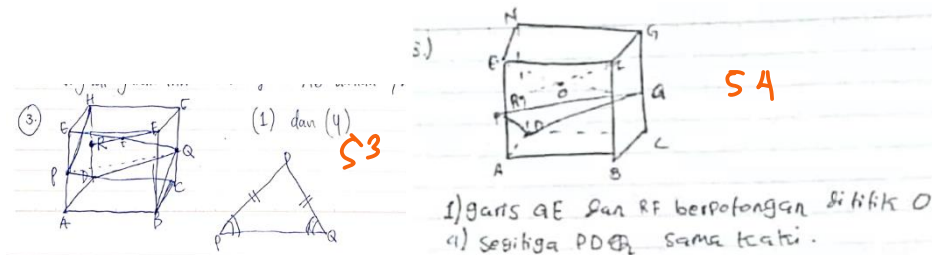 3.
H
G
E
F
R
Q
P
D
C
A
B
(1) dan (4)
S3
D
P
Q
3.)
N
G
E
F
O
R
Q
P
D
A
B
C
S4
1) garis QE dan RF berpotongan di titik O
4) Segitiga PDQ sama kaki.